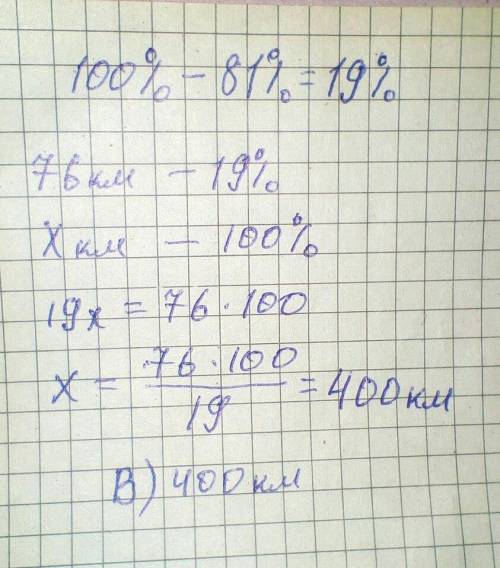 100% - 81% = 19%
76 км - 19%
X км - 100%
19x = 76 · 100
x = 76 · 100 / 19 = 400 км
В) 400 км